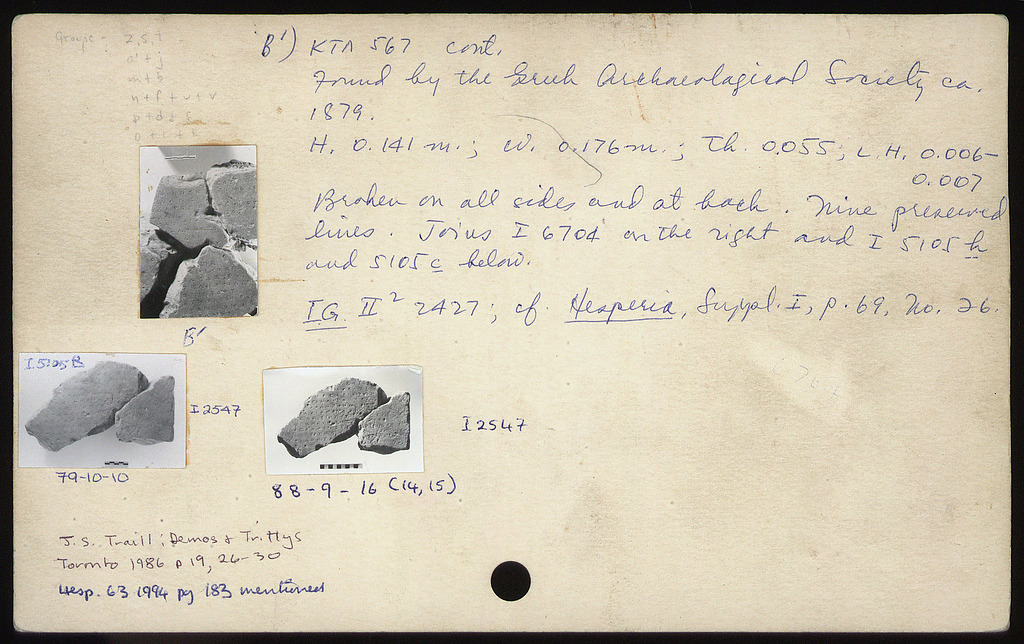 Groups - 2, 5, 1
a' + j
m + b
n + f + u + v
p + d + s
B') KTΛ 567 cont.
Found by the Greek Archaeological Society ca.
1879.
H. 0.141 m.; W. 0.176 m.; Th. 0.055; L.H. 0.006-
0.007
Broken on all sides and at back. Nine preserved
lines. Joins I 6704 on the right and I 5105 h
and 5105 c below.
IG II² 2427; cf. Hesperia, Suppl. I, p. 69, no. 26.
B'
I 5105 B
I 2547
79-10-10
I 2547
88-9-16 (14, 15)
J. S. Traill: Demos & Trittys
Toronto 1986 p 19, 26-30
Hesp. 63 1994 pg 183 mentioned